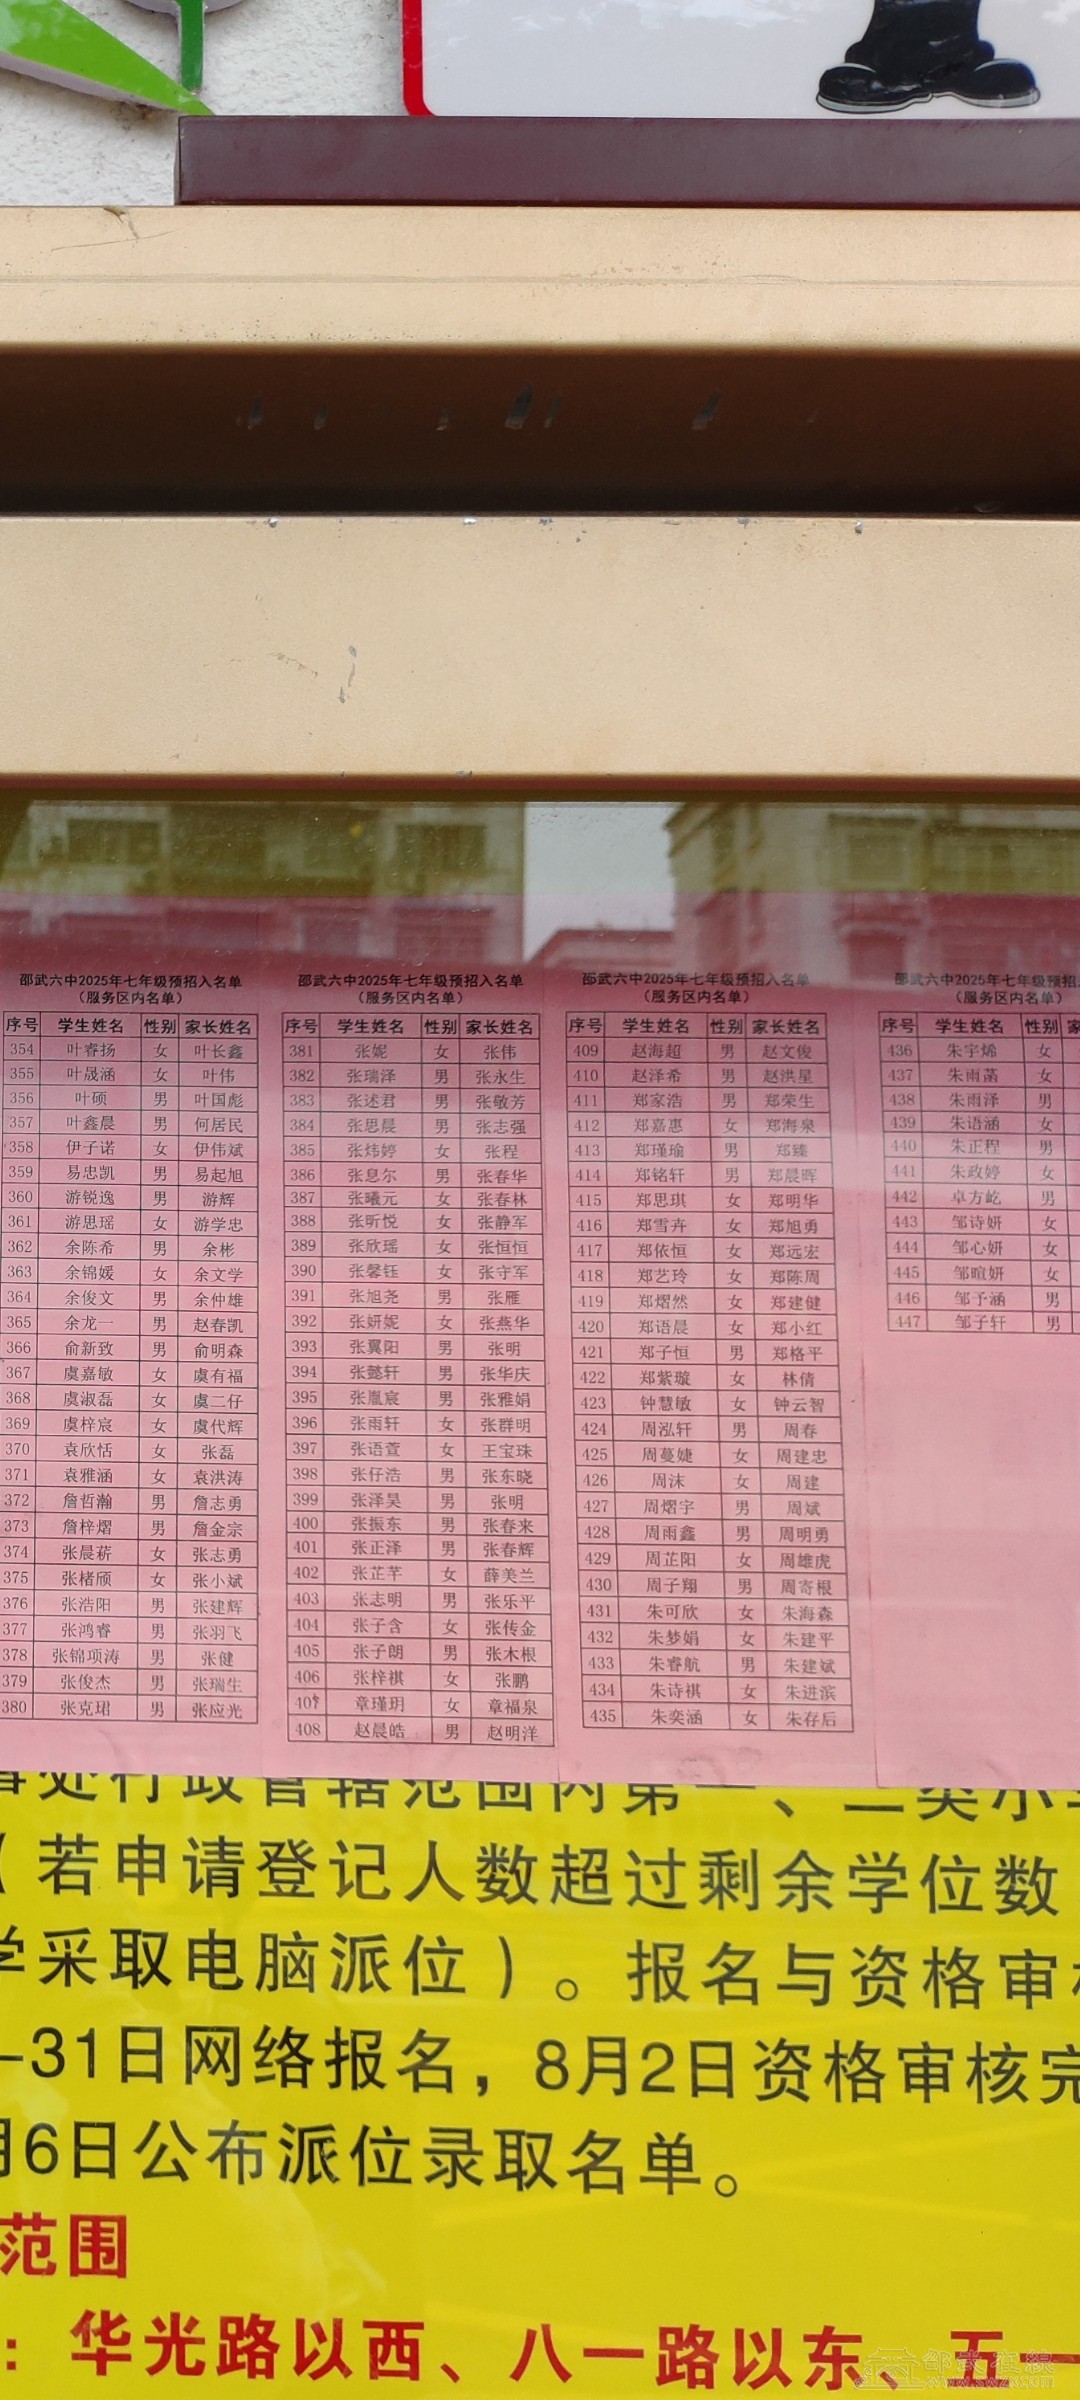 邵武六中2025年七年级预招入名单
（服务区内名单）
序号 学生姓名 性别 家长姓名
354 叶睿扬 女 叶长鑫
355 叶晟涵 女 叶伟
356 叶硕 男 叶国彪
357 叶鑫晨 男 何居民
358 伊子诺 女 伊伟斌
359 易忠凯 男 易起旭
360 游锐逸 男 游辉
361 游思瑶 女 游学忠
362 余陈希 男 余彬
363 余锦媛 女 余文学
364 余俊文 男 余仲雄
365 余龙一 男 赵春凯
366 俞新致 男 俞明森
367 虞嘉敏 女 虞有福
368 虞淑磊 女 虞二仔
369 虞梓宸 女 虞代辉
370 袁欣恬 女 张磊
371 袁雅涵 女 袁洪涛
372 詹哲瀚 男 詹志勇
373 詹梓熠 男 詹金宗
374 张晨菥 女 张志勇
375 张楮颀 女 张小斌
376 张浩阳 男 张建辉
377 张鸿睿 男 张羽飞
378 张锦项涛 男 张健
379 张俊杰 男 张瑞生
380 张克珺 男 张应光
邵武六中2025年七年级预招入名单
（服务区内名单）
序号 学生姓名 性别 家长姓名
381 张妮 女 张伟
382 张瑞泽 男 张永生
383 张述君 男 张敬芳
384 张思晨 男 张志强
385 张炜婷 女 张程
386 张息尔 男 张春华
387 张曦元 女 张春林
388 张昕悦 女 张静军
389 张欣瑶 女 张恒恒
390 张馨钰 女 张守军
391 张旭尧 男 张雁
392 张妍妮 女 张燕华
393 张翼阳 男 张明
394 张懿轩 男 张华庆
395 张胤宸 男 张雅娟
396 张雨轩 女 张群明
397 张语萱 女 王宝珠
398 张仔浩 男 张东晓
399 张泽昊 男 张明
400 张振东 男 张春来
401 张正泽 男 张春辉
402 张芷芊 女 薛美兰
403 张志明 男 张乐平
404 张子含 女 张传金
405 张子朗 男 张木根
406 张梓祺 女 张鹏
407 章瑾玥 女 章福泉
408 赵晨皓 男 赵明洋
邵武六中2025年七年级预招入名单
（服务区内名单）
序号 学生姓名 性别 家长姓名
409 赵海超 男 赵文俊
410 赵泽希 男 赵洪星
411 郑家浩 男 郑荣生
412 郑嘉惠 女 郑海泉
413 郑瑾瑜 男 郑臻
414 郑铭轩 男 郑晨晖
415 郑思琪 女 郑明华
416 郑雪卉 女 郑旭勇
417 郑依恒 女 郑远宏
418 郑艺玲 女 郑陈周
419 郑熠然 女 郑建健
420 郑语晨 女 郑小红
421 郑子恒 男 郑格平
422 郑紫璇 女 林倩
423 钟慧敏 女 钟云智
424 周泓轩 男 周春
425 周蔓婕 女 周建忠
426 周沫 女 周建
427 周熠宇 男 周斌
428 周雨鑫 男 周明勇
429 周芷阳 女 周雄虎
430 周子翔 男 周寄根
431 朱可欣 女 朱海森
432 朱梦娟 女 朱建平
433 朱睿航 男 朱建斌
434 朱诗祺 女 朱进滨
435 朱奕涵 女 朱存后
邵武六中2025年七年级预招
（服务区内名单
序号 学生姓名 性别 家
436 朱宇烯 女
437 朱雨菡 女
438 朱雨泽 男
439 朱语涵 女
440 朱正程 男
441 朱政婷 女
442 卓方屹 男
443 邹诗妍 女
444 邹心妍 女
445 邹暄妍 女
446 邹予涵 男
447 邹子轩 男
事处行政管辖范围内第一、二类小学
（若申请登记人数超过剩余学位数
学采取电脑派位）。报名与资格审核
-31日网络报名，8月2日资格审核完
月6日公布派位录取名单。
范围
：华光路以西、八一路以东、五一
邵武在線
www.swzx.com